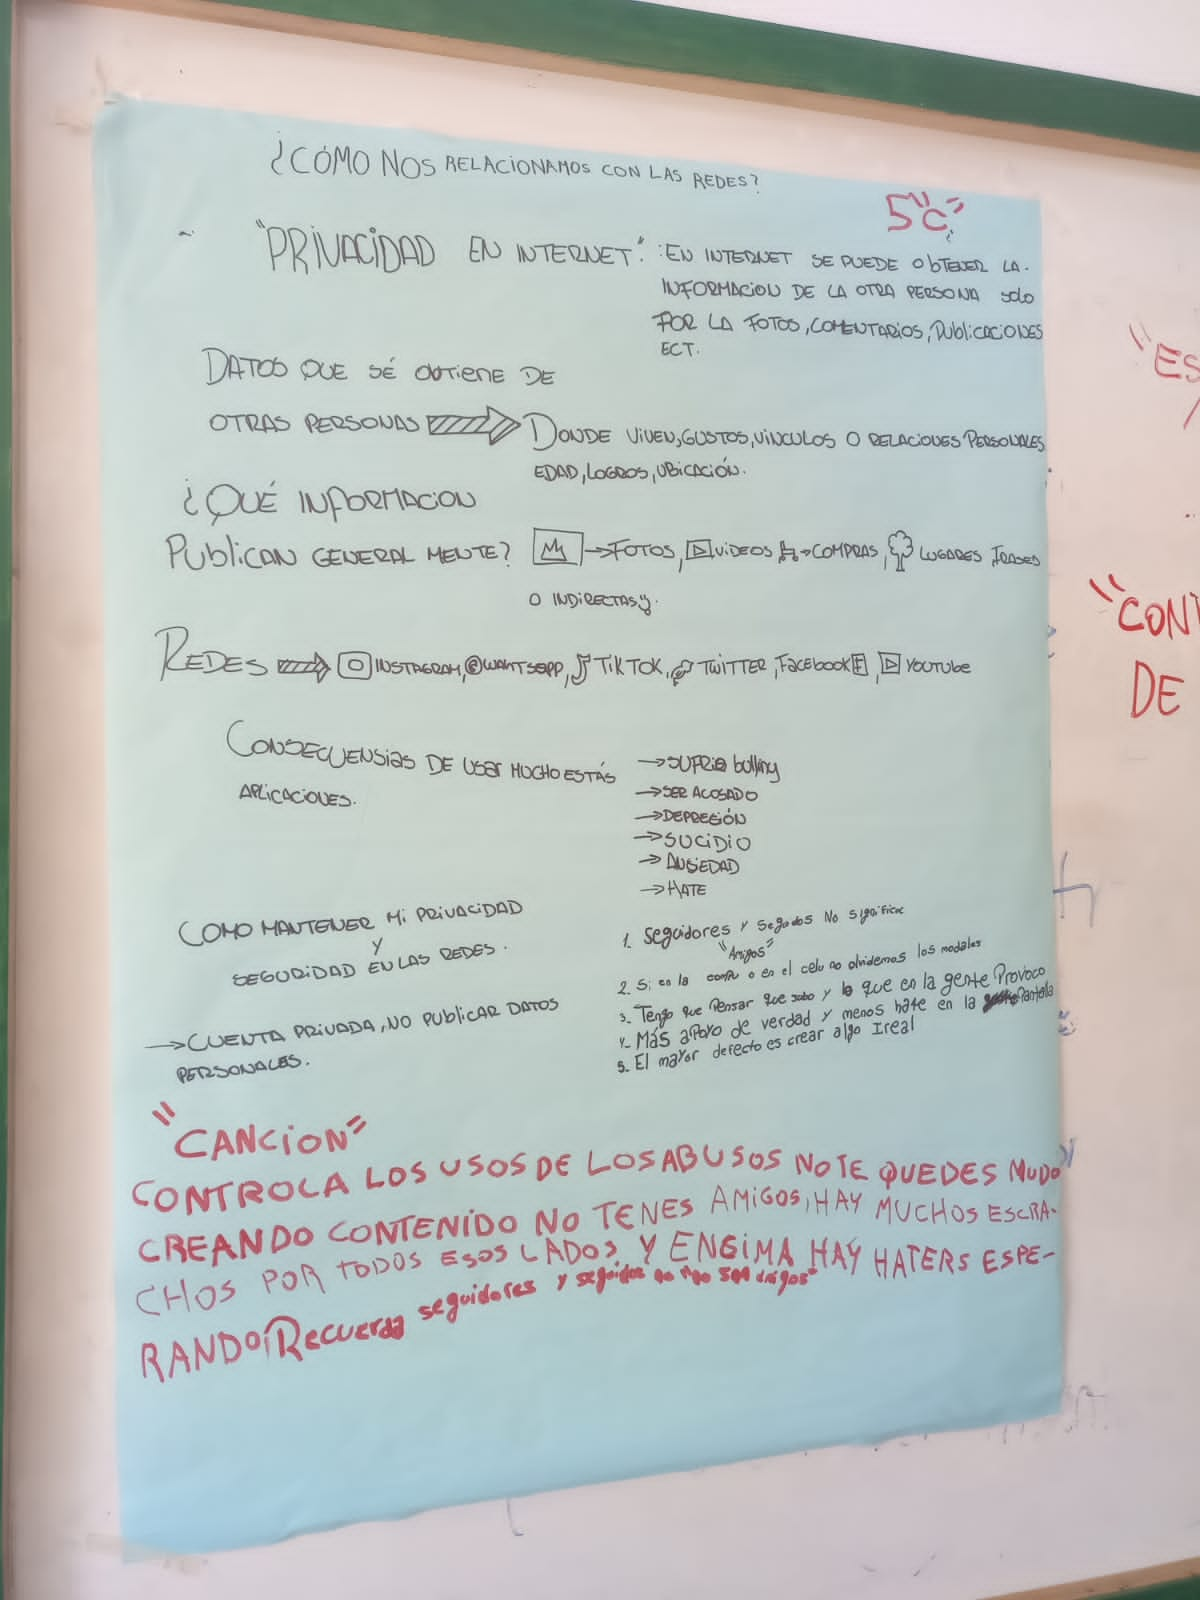 ¿CÓMO NOS RELACIONAMOS CON LAS REDES?
5"C"
"PRIVACIDAD EN INTERNET": EN INTERNET SE PUEDE ObTENER LA
INFORMACION DE LA OTRA PERSONA SOLO
POR LA FOTOS, COMENTARIOS, PUBLICACIONES
ECT.
DATOS QUE SÉ OBTIENE DE
OTRAS PERSONAS
DONDE VIVEN, GUSTOS, VINCULOS O RELACIONES PERSONALES
EDAD, LOGROS, UBICACIÓN.
¿QUÉ INFORMACION
PUBLICAN GENERAL MENTE? → FOTOS, VIDEOS → COMPRAS, LUGARES, FRASES
O INDIRECTAS
REDES INSTAGRAM, WHATSAPP, TIKTOK, TWITTER, FACEBOOK, YOUTUBE
CONSECUENSIAS DE USAR MUCHO ESTÁS
APLICACIONES.
→ SUFRIR bulling
→ SER ACOSADO
→ DEPRESIÓN
→ SUCIDIO
→ ANSIEDAD
→ HATE
COMO MANTENER MI PRIVACIDAD
Y
SEGURIDAD EN LAS REDES.
→ CUENTA PRIVADA, NO PUBLICAR DATOS
PERSONALES.
1. Seguidores y Seguidos No significa
"Amigos"
2. Si en la compu o en el celu no olvidemos los modales
3. Tengo que Pensar que subo y lo que en la gente Provoco
4. Más apoyo de verdad y menos hate en la Pantalla
5. El mayor defecto es crear algo Ireal
"CANCION"
CONTROLA LOS USOS DE LOS ABUSOS NO TE QUEDES MUDO
CREANDO CONTENIDO NO TENES AMIGOS, HAY MUCHOS ESCRA-
CHOS POR TODOS ESOS LADOS, Y ENSIMA HAY HATERS ESPE-
RANDO, Recuerda seguidores y seguidos no son amigos"
"ES
"CONT
DE